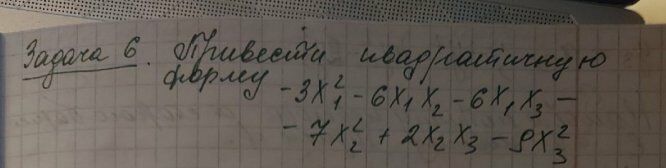 Задача 6. Привести квадратичную
форму -3x₁² - 6x₁x₂ - 6x₁x₃ -
- 7x₂² + 2x₂x₃ - 9x₃²